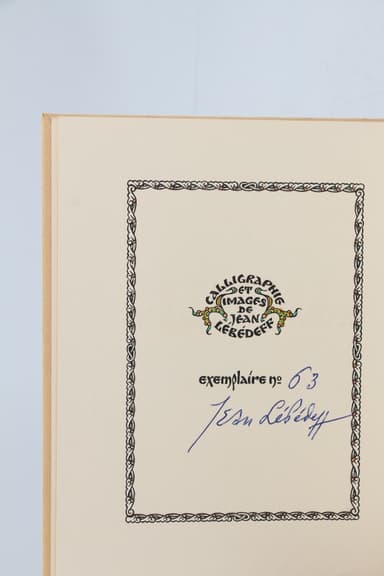 CALLIGRAPHIE
ET
IMAGES
DE
JEAN
LÉBÉDEFF
exemplaire nº 63
Jean Lébédeff